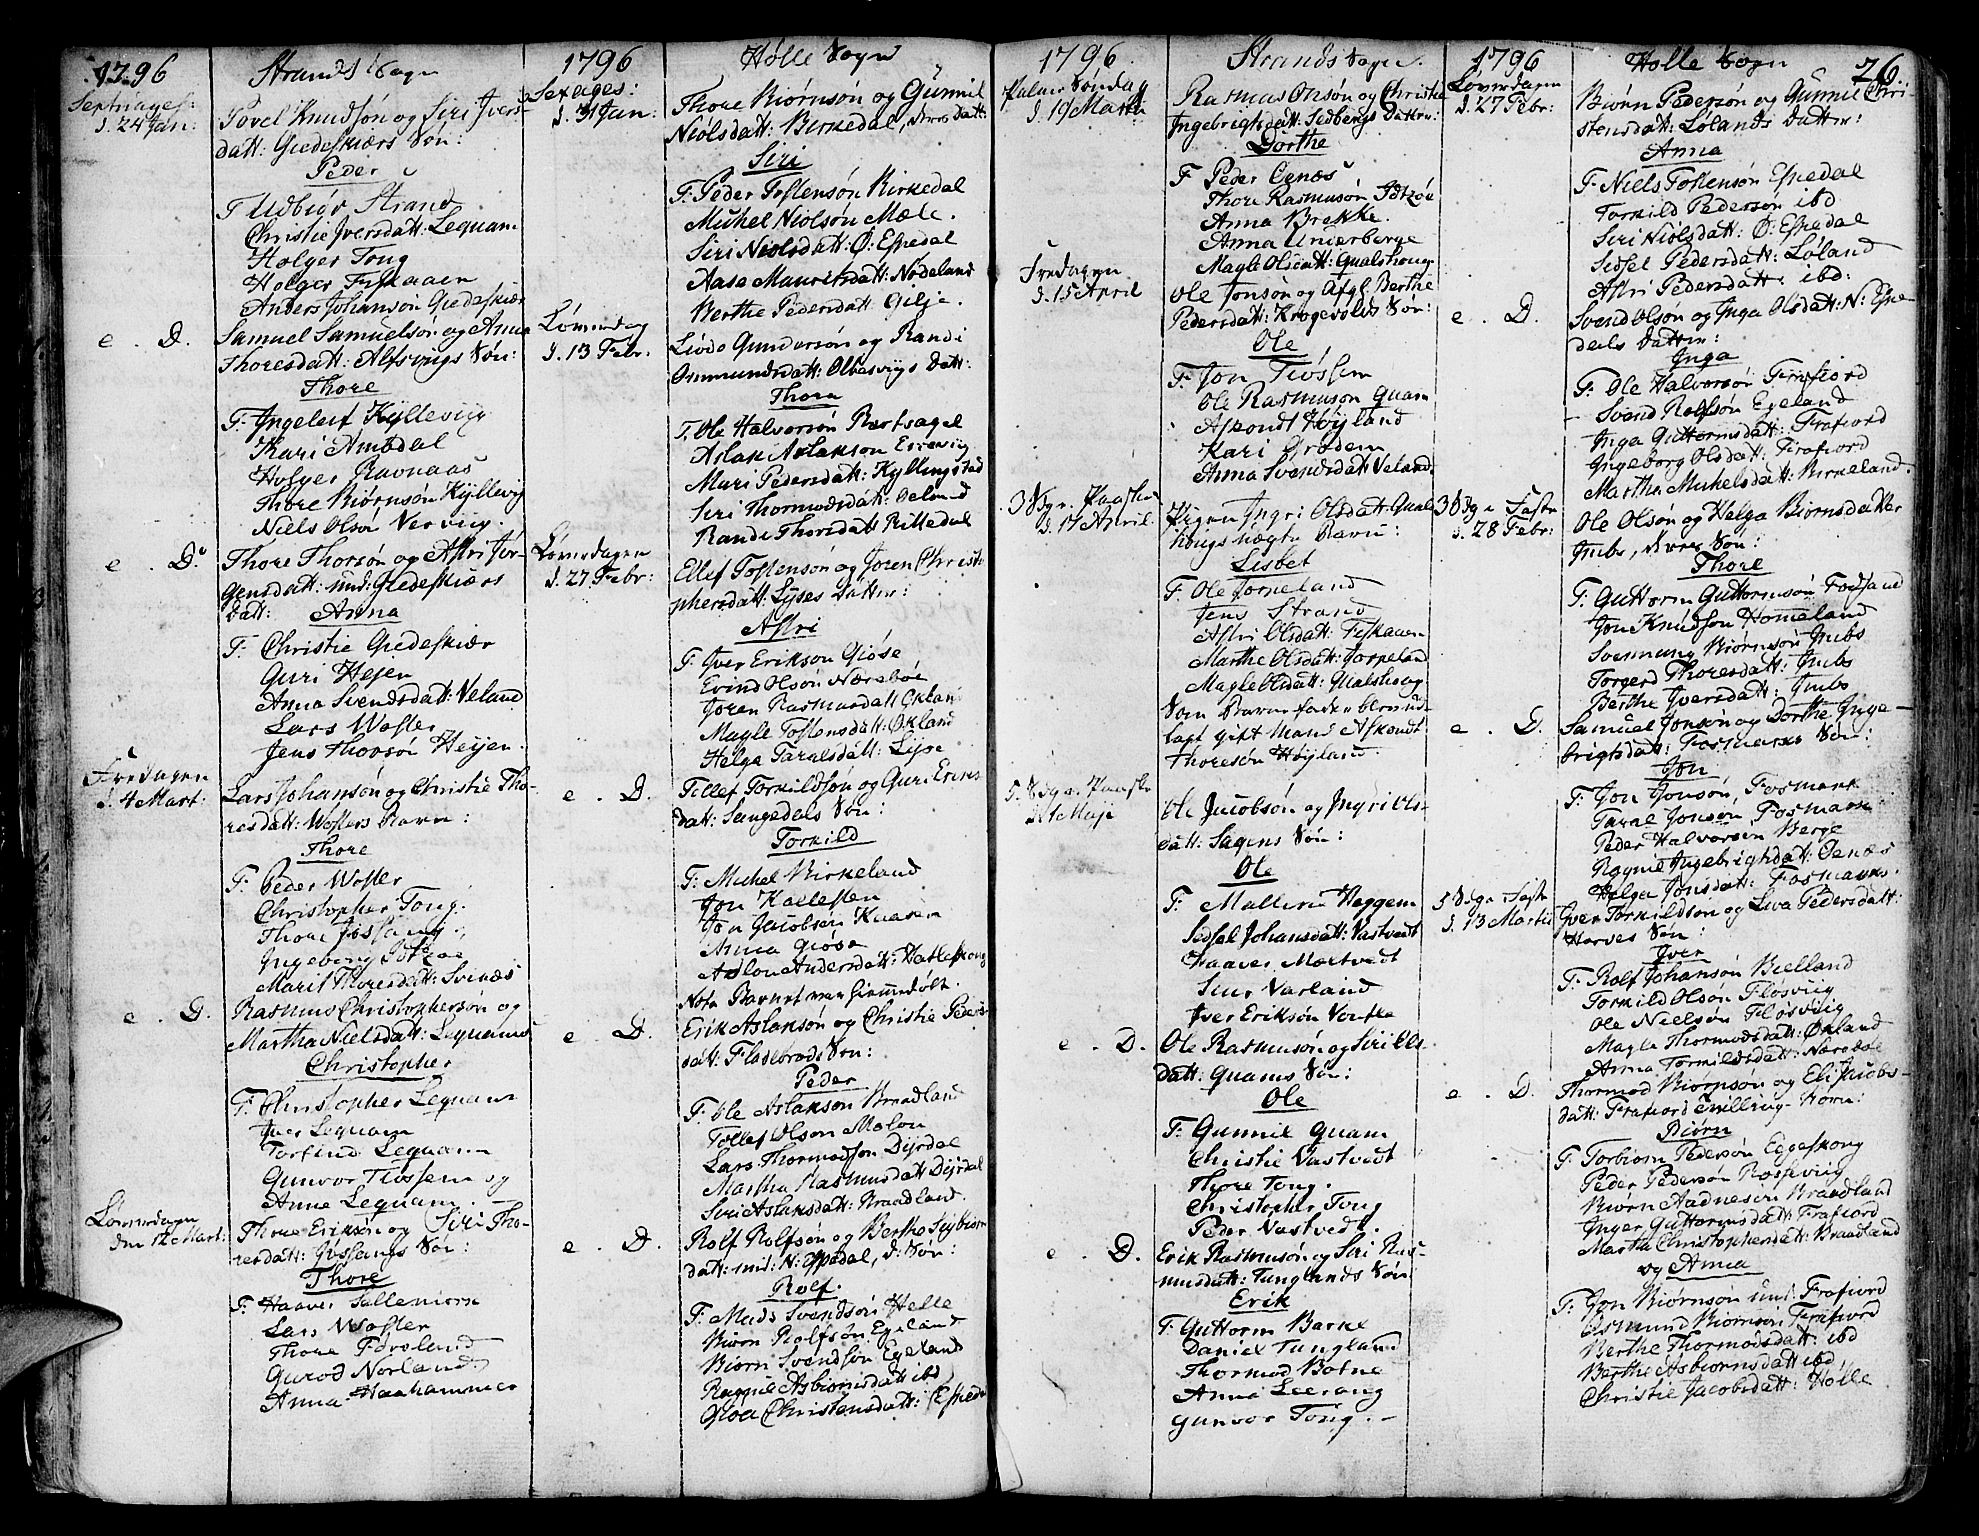 1796
Strands Sogn
Septuages:
d. 24 Jan:
Povel Knudsøn og Siri Ivers-
datt: Giedeskiærs Søn:
Peder
F. Udbiør Strand
Christie Iversdatt: Lequam
Holger Tong
Holger Fiskaaen
Anders Johansøn Giedeskiær
e. D.
Samuel Samuelsøn og Anna
Thoresdatt: Alfsvigs Søn:
Thore
F. Ingeleif Kyllevig
Kari Amdal
Holger Ravnaas
Thore Biørnsøn Kyllevig
Niels Olsøn Vervig.
e. D.
Thore Thorsøn og Astri Jør-
gensdatt: und: Giedeskiærs
datt: Anna
F. Christie Giedeskiær
Guri Heien
Anna Svendsdatt: Veland
Lars Wosler
Jens Thorsøn Heyen
Fredagen
d. 4 Mart:
Lars Johansøn og Christie Tho-
resdatt: Woslers Barn:
Thore
F. Peder Wosler
Christopher Tong.
Thore Jøssang.
Ingeborg Idtzøe
Marit Thoresdatt: Svinæs
e. D.
Rasmus Christophersøn og
Martha Nielsdatt: Lequams
Christopher
F. Christopher Lequam
Iver Lequam
Torfind Lequam
Gunvor Tiøssem og
Anne Lequam.
Løverdagen
den 12 Mart:
Thore Eriksøn og Siri Tho-
resdatt: Jøssangs Søn:
Thore
F. Haaver Sallemiork
Lars Wosler
Thore Føreland
Gurod Norland
Anna Haahammer
1796
Hølle Sogn
Sexages:
d. 31 Jan:
Thore Biørnsøn og Gunnil
Niølsdatt: Birkedal, deres datt:
Siri
F. Peder Tostensøn Birkedal
Michel Niølsøn Mæle.
Siri Niølsdatt: Ø: Espedal
Aase Mauritsdatt: Nødeland
Berthe Pedersdatt: Gilje.
Løverdag
d. 13 Febr:
Livdo Gundersøn og Randi
Ommundsdatt: Oltesvigs datt:
Thora
F. Ole Halvorsøn Rørtvagel
Aslak Aslaksøn Eirevig
Mari Pedersdatt: Kyllingstad
Siri Thormodsdatt: Deland
Randi Thorsdatt Rittedal
Løverdagen
d. 27 Febr:
Ellef Tostensøn og Joren Christ-
phersdatt: Lyses datter:
Astri
F. Iver Eriksøn Giøse
Evind Olsøn Nærebøe
Joren Rasmusdatt Økland
Magle Tostensdatt: Økland
Helga Taralsdatt: Lyse
e. D.
Tellef Torkildsøn og Guri Eriks
datt: Sangedals Søn:
Torkild
F. Michel Birkeland
Jon Kallesten
Jon Jacobsøn Kaasen
Anna Giøse
Adlou Andersdatt: Hatleskog
Nota Barnet var hiemmedøbt.
e. D.
Erik Aslaksøn og Christie Peders
datt: Fladebrods Søn:
Peder
F. Ole Aslaksøn Braadland
Tollef Olsøn Molou
Lars Thormodsøn Dirdal
Martha Rasmusdatt Dirdal
Siri Aslaksdatt: Braadland.
e. D.
Rolf Rolfsøn og Berthe Sigbiørn
datt: und: N: Espedal, d: Søn:
Rolf.
F. Mads Svendsøn Helle
Biørn Rolfsøn Egeland
Biørn Svendsøn Egeland
Ragnil Asbiørnsdatt ibd
Gloa Christensdatt: Espedal
1796
Strands Sogn.
Palme Søndag
d. 19 Marti
Rasmus Onsøn og Christie
Ingebrigtsdatt: Sedbergs datter:
Dorthe
F Peder Eenæs
Thore Rasmusøn Idtzøe
Anna Brekke.
Anna Underberge
Magle Olsdatt: Qualshoug
Fredagen
d. 15 April
Ole Jonsøn og Afgl. Berthe
Pedersdatt: Krogevolds Søn:
Ole
F. Jon Tiøssem
Ole Rasmusøn Quam
Askondt Høyland
Kari Grødem
Anna Svendsdatt Veland.
3 Sg. e. Paaske
d. 17 April.
Pigen Ingri Olsdatt: Quals-
hougs uægte Barn:
Lisbet
F. Ole Jørpeland
Jens Strand
Astri Olsdatt: Fiskaaen
Marthe Olsdatt: Jørpeland
Magle Olsdatt: Qualshoug
Som Barnefader blev ud-
lagt gift Mand Askondt
Thoresøn Høyland
5. Sg. e. Paaske
d. 1 Maji
Ole Jacobsøn og Ingri Ols-
datt: Sagens Søn:
Ole
F. Malleri Heggem
Sedsel Johansdatt: Vastvedt
Haaver Mærtvedt
Siur Varland
Iver Eriksøn Voutke
e. D.
Ole Rasmusøn og Siri Ols-
datt: Quams Søn:
Ole
F. Gunnil Quam
Christie Vastvedt
Thore Tong.
Christopher Tong
Peder Vastvedt.
e. D.
Erik Rasmusøn og Siri Ras-
musdatt: Tunglands Søn:
Erik
F. Guttorm Barke
Daniel Tungland
Thormod Botne
Anna Leerang
Gunvor Tong.
1796
Hølle Sogn
26.
Løverdagen
d. 27 Febr:
Biørn Pedersøn og Gunnil Chri-
stensdatt: Lølands datter:
Anna
F. Niels Tostensøn Espedal
Torkild Pedersøn ibd
Siri Niølsdatt: Ø: Espedal
Sidsel Pedersdatt: Løland
Astri Pedersdatt: ibd:
e. D.
Svend Olsøn og Inga Olsdatt: N: Espe-
dals datter:
Inga
F. Ole Halvorsøn Frafiord
Svend Rolfsøn Egeland
Inga Guttormsdatt: Frafiord
Ingeborg Olsdatt: Frafiord
Martha Michelsdatt: Birkeland.
3 Sg. i Faste
d. 28 Febr:
Ole Olsøn og Helga Biørnsdatter
Imbs, deres Søn:
Thore
F. Guttorm Guttormsøn Fodsand
Jon Knudsøn Homeland
Svennung Biørnsøn Imbs
Torgerd Thoresdatt: Imbs
Berthe Iversdatt: Imbs
e. D.
Samuel Jonsøn og Dorthe Inge-
brigtsdatt: Fosmarks Søn:
Jon
F. Jon Jonsøn, Fosmark
Taral Jonsøn, Fosmark
Peder Halvorsøn Berge
Ragnil Ingebrigtsdatt: Eenæs
Helga Jonsdatt: Fosmarks.
5 Sg. i Faste
d. 13 Martii
Iver Torkildsøn og Liva Pedersdatt:
Horves Søn:
Iver
F. Rolf Johansøn Bielland
Torkild Olsøn Fløsviig
Ole Nielsøn Fløsviig
Magla Thormodsdatt: Økland
Anna Torkildsdatt: Nærebøe
e. D.
Thormod Biørnsøn og Eli Jacobs-
datt: Frafiord Tvilling-Børn:
Biørn
F. Torbiørn Pedersøn Eggeskong
Peder Pedersøn Rossevig
Biørn Aadnesøn Braadland
Inger Guttormsdatt: Frafiord
Martha Christophersdatt: Braadland
og Anna
F. Jon Biørnsøn und: Frafiord
Osmund Biørnsøn Frafiord
Berthe Thormodsdatt: ibd
Berthe Asbiørnsdatt ibd
Christie Jacobsdatt: Hølle